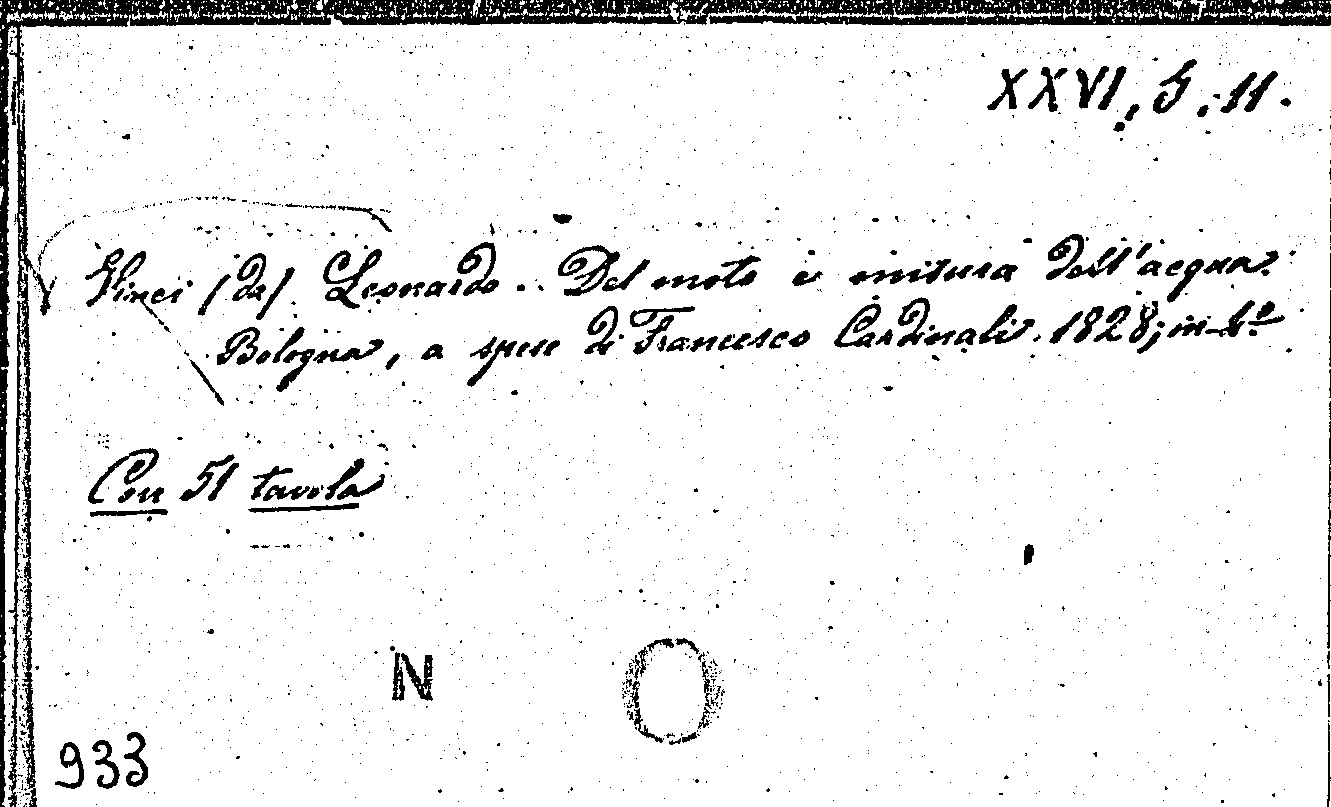 XXVI, G. 11.
Vinci (da) Leonardo. Del moto e misura dell'acqua.
Bologna, a spese di Francesco Cardinali. 1828; in-4º
Con 51 tavola
N
933